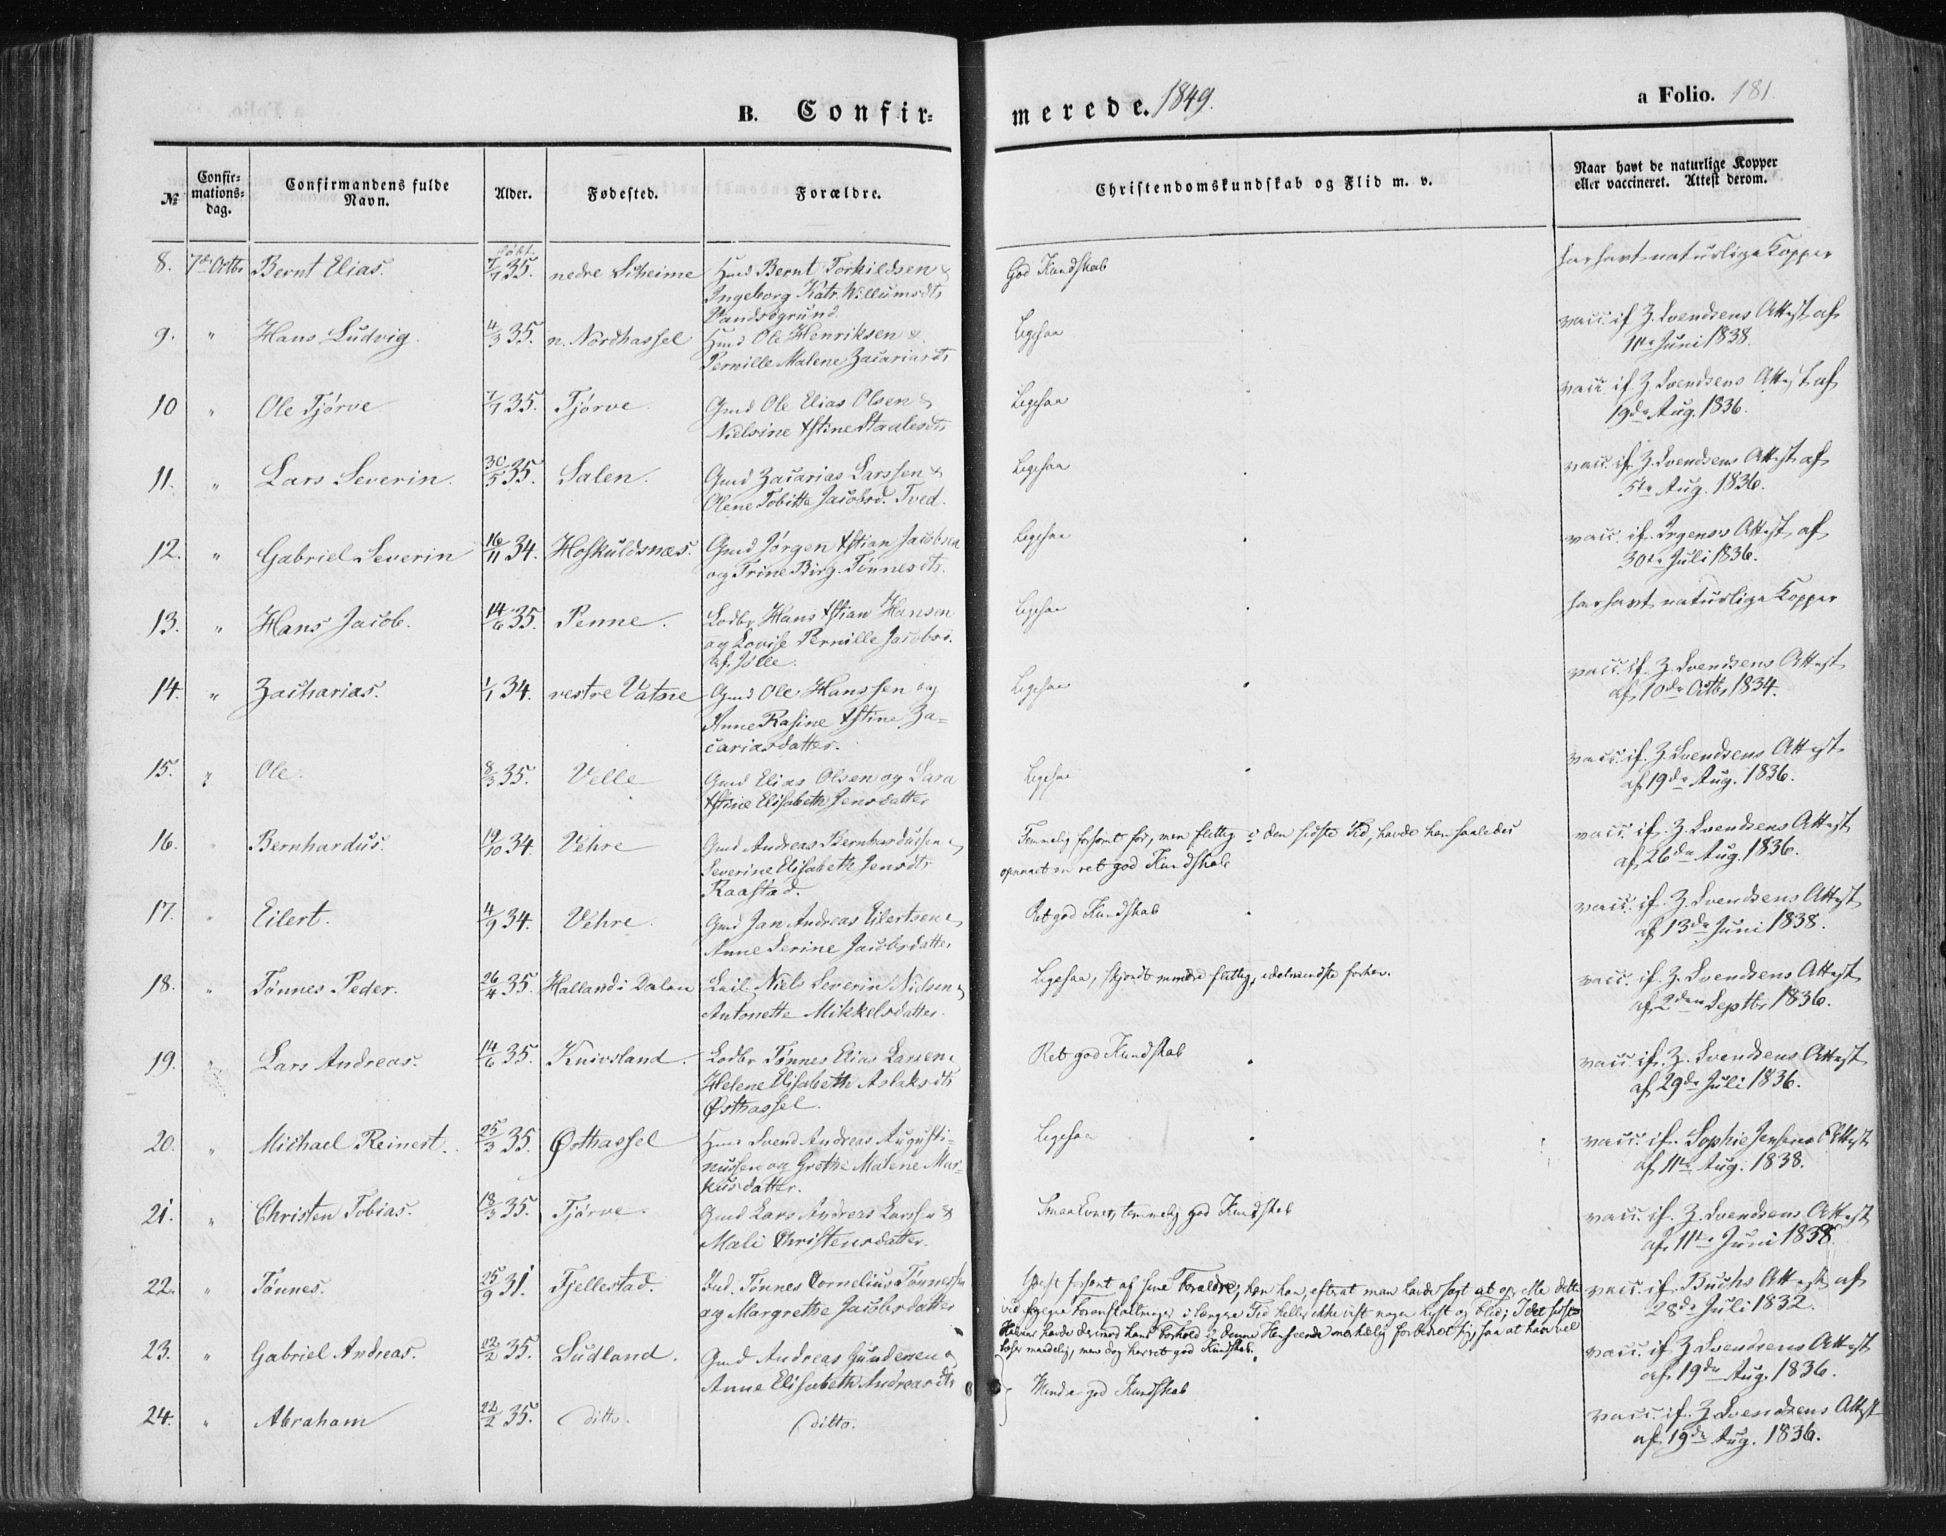 B. Confir-
merede. 1849.
a Folio. 181.
№
Confir-
mations-
dag.
Confirmandens fulde
Navn.
Alder.
Fødested.
Forældre.
Christendomskundskab og Flid m. v.
Naar havt de naturlige Kopper
eller vaccineret. Attest derom.
8. 7de Octbr Bernt Elias. 7/7 35. nedre Skeime Huusmd Bernt Torkildsen &
Ingeborg Katr. Willumsdtr
Vandsøgrund.
God Kundskab
har havt naturlige Kopper
9. " Hans Ludvig. 4/3 35. n. Nordhassel Huusmd Ole Henriksen &
Pernille Malene Zacariasdtr
Ligesaa
vacc. if. Z. Svendsens Attest af
11te Juni 1838.
10 " Ole Tjørve 7/7 35. Tjørve. Gmd Ole Elias Olsen &
Nielsine Xstine Staalesdtr
Ligesaa
vacc. if. Z. Svendsens Attest af
19de Aug. 1836.
11. " Lars Severin. 30/5 35. Salen. Gmd Zacarias Larssen &
Olene Tobitte Jacobsd. Tved.
Ligesaa
vacc. if. Z. Svendsens Attest af
5te Aug. 1836.
12. " Gabriel Severin 16/11 34. Hoskuldsnæs. Gmd Jørgen Xstian Jacobsen
og Trine Birg. Tønnesdtr.
Ligesaa
vacc. if. Irgenss Attest af
30te Juli 1836.
13. " Hans Jacob. 14/6 35. Penne. Lodbr Hans Xstian Hansen
og Lovise Pernille Jacobsd.
Ligesaa
har havt naturlige Kopper
14. " Zacharias. 1/1 34. vestre Vatne Gmd Ole Hanssen og
Anne Rasine Xstine Za-
cariasdatter.
Ligesaa
vacc. if. Z. Svendsens Attest
af 10de Octbr 1834.
15. " Ole. 8/3 35. Velle Gmd Elias Olsen og Sara
Xstine Elisabeth Jensdatter
Ligesaa
vacc. if. Z. Svendsens Attest
af 19de Aug. 1836.
16. " Bernhardus. 19/10 34. Vehre Gmd Andreas Bernhardusen &
Severine Elisabeth Jensdtr
Raastad.
Temmelig forsømt før, men flittig i den sidste Tid, havde han saaledes
opnaaet en ret god Kundskab
vacc. if. Z. Svendsens Attest
af 26de Aug. 1836.
17. " Eilert. 4/9 34. Vehre. Gmd Jan Andreas Eilertsen &
Anne Serine Jacobsdatter
Ret god Kundskab
vacc. if. Z. Svendsens Attest
af 13de Juni 1838.
18. " Tønnes Peder. 26/4 35. Hallandi Dalen Leil. Niels Severin Nielsen &
Antonette Mikkelsdatter.
Ligesaa, skjøndt mindre flittig, idetmindste forhen.
vacc. if. Z. Svendsens Attest
af 2den Septbr 1836.
19. " Lars Andreas. 14/6 35. Knivsland. Lodbr Tønnes Elias Larsen &
Helene Elisabeth Aslaksdtr
Østhassel.
Ret god Kundskab
vacc. if. Z. Svendsens Attest
af 29de Juli 1836.
20. " Michael Reinert. 25/3 35. Østhassel Huusmd Svend Andreas Augusti-
nussen og Grethe Malene Mar-
kusdatter.
Ligesaa
vacc. if. Sophie Jensens Attest
af 11te Aug. 1838.
21. " Christen Tobias. 18/3 35. Tjørve. Gmd Lars Andreas Larssen &
Mali Christensdatter.
Smaa Evner, temmelig god Kundskab
vacc. if. Z. Svendsens Attest
af 11te Juni 1838.
22. " Tønnes. 25/9 31. Fjellestad. Ind. Tønnes Cornelius Tønnessen
og Margrethe Jacobsdatter
forsømt af sine Forældre, har han, efterat man havde søgt at oprette dette
ved egne Foranstaltninger, i længre Tid heller ikke vist nogen Lyst og Flid; I det sidste
Halvaar havde derimod hans Forhold i denne Henseende mærkelig forbedret sig, saa at han vel
læser maadelig, men dog har ret god Kundskab.
vacc. if. Buchs Attest af
28de Juli 1832.
23. " Gabriel Andreas. 22/2 35. Sudland. Gmd Andreas Gundersen &
Anne Elisabeth Andreasdtr
Mindre god Kundskab
vacc. if. Z. Svendsens Attest
af 19de Aug. 1836.
24. " Abraham 22/2 35. ditto. ditto.
vacc. if. Z. Svendsens Attest
af 19de Aug. 1836.